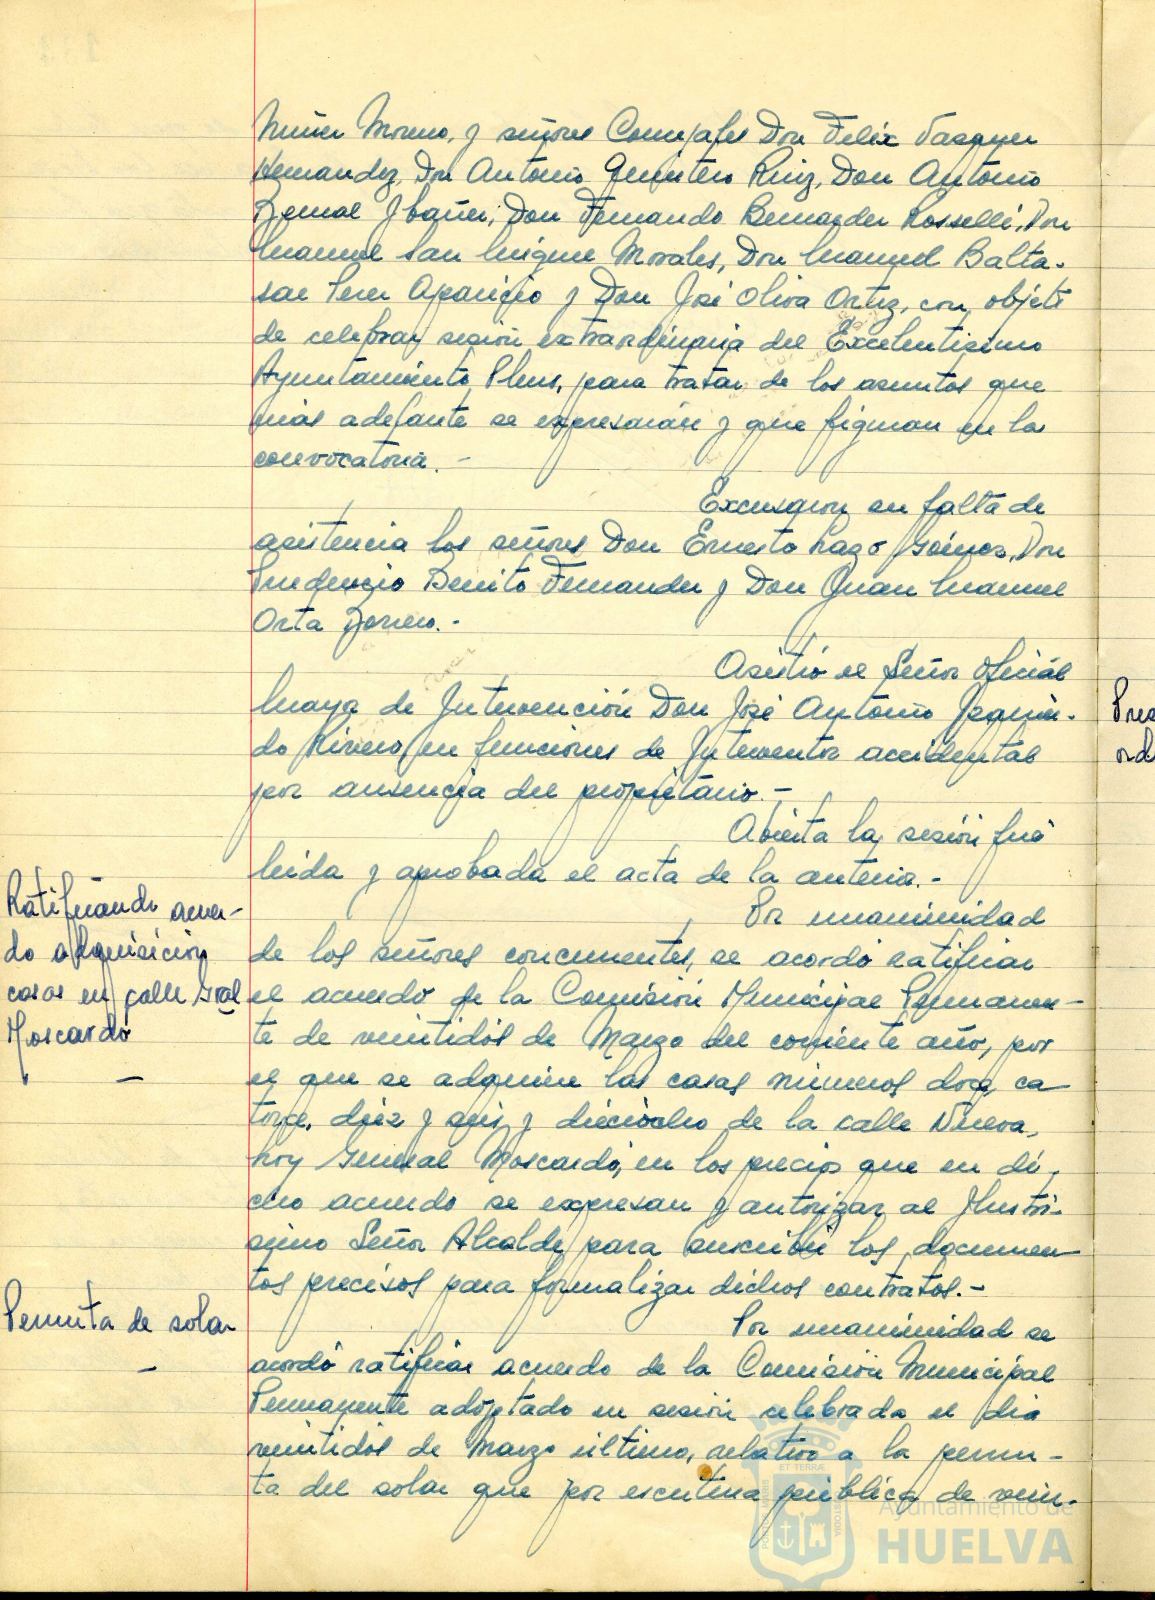 Núñez Moreno, y señores Concejales Don Félix Vázquez
Hernandez, Don Antonio Quintero Ruiz, Don Antonio
Bernal Ybañez, Don Fernando Bernardez Rosselló, Don
Manuel San Miguel Morales, Don Manuel Balta-
sar Perez Aparicio y Don José Oliva Ortiz, con objeto
de celebrar sesión extraordinaria del Excelentisimo
Ayuntamiento Pleno, para tratar de los asuntos que
más adelante se expresarán y que figuran en la
convocatoria.-
Excusaron su falta de
asistencia los señores Don Ernesto Lazo Gómez, Don
Prudencio Benito Fernandez y Don Juan Manuel
Orta Borrero.-
Asistió el Señor Oficial
Mayor de Intervención Don José Antonio
do Rivero, en funciones de Interventor accidental
por ausencia del propietario.-
Abierta la sesión fué
leida y aprobada el acta de la anterior.-
Ratificando acuer-
do adquisición
casas en calle Gral
Moscardó
-
Por unanimidad
de los señores concurrentes, se acordó ratificar
el acuerdo de la Comisión Municipal Permanen-
te de veintidós de Marzo del corriente año, por
el que se adquiere las casas números doce, ca-
torce, diez y seis y dieciocho de la calle Nueva,
hoy General Moscardó, en los precios que en di-
cho acuerdo se expresan y autorizar al Ilustri-
simo Señor Alcalde para suscribir los documen-
tos precisos para formalizar dichos contratos.-
Permuta de solar
-
Por unanimidad se
acordó ratificar acuerdo de la Comisión Municipal
Permanente adoptado en sesión celebrada el dia
veintidos de Marzo último, relativo a la permu-
ta del solar que por escritura pública de vein-
Pres
ord
Ayuntamiento de
HUELVA